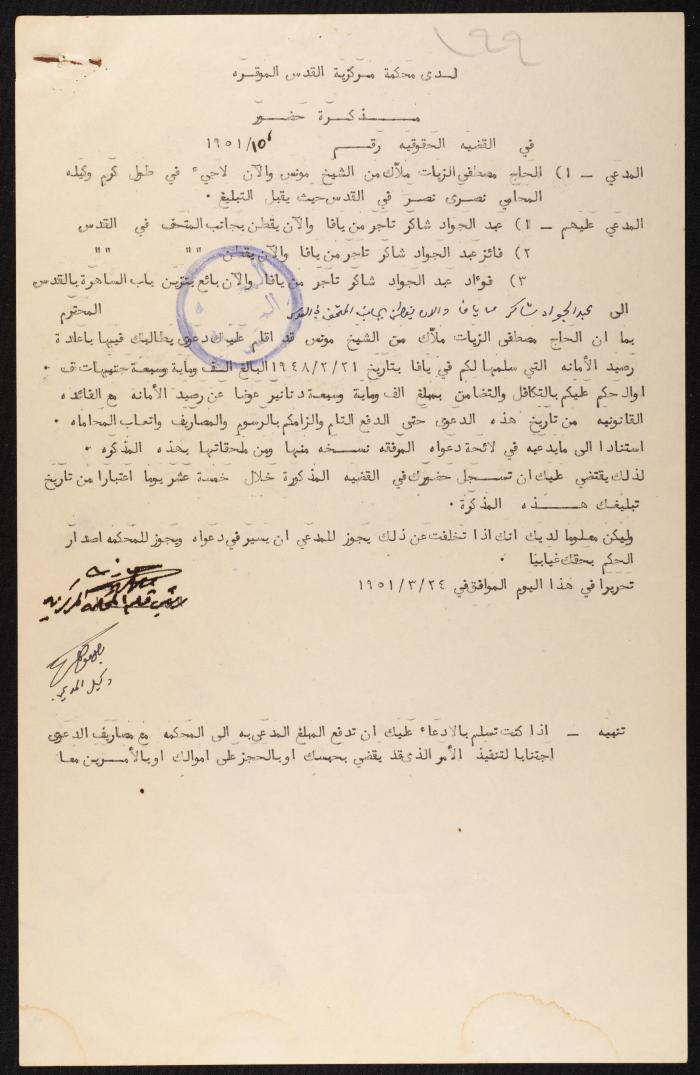 ١٩٩
لدى محكمة مركزية القدس الموقره
مذكرة حضور
في القضيه الحقوقيه رقم /١٩٥١
المدعي - ١) الحاج مصطفى الزيات ملاك من الشيخ مونس والآن لاجيء في طول كرم وكيله
المحامي نصرى نصر في القدس حيث يقبل التبليغ ٠
المدعي عليهم - ١) عبد الجواد شاكر تاجر من يافا والآن يقطن بجانب المتحف في القدس
٢) فائز عبد الجواد شاكر تاجر من يافا والآن يقطن " " " "
٣) فوءاد عبد الجواد شاكر تاجر من يافا والآن بائع بنزين باب الساهرة بالقدس
الى عبد الجواد شاكر من يافا والان يقطن بجانب المتحف في القدس المحترم
بما ان الحاج مصطفى الزيات ملاك من الشيخ مونس قد اقام عليك دعوى يطالبك فيها باعادة
رصيد الأمانه التي سلمها لكم في يافا بتاريخ ١٩٤٨/٢/٢١ البالغ الف وماية وسبعة جنيهات ف ٠
او الحكم عليكم بالتكافل والتضامن بمبلغ الف وماية وسبعة دنانير عوضا عن رصيد الأمانه مع الفائده
القانونيه من تاريخ هذه الدعوى حتى الدفع التام والزامكم بالرسوم والمصاريف واتعاب المحاماه ٠
استنادا الى مايدعيه في لائحة دعواه المرفقه نسخه منها ومن ملحقاتها بهذه المذكره ٠
لذلك يقتضي عليك ان تسجل حضورك في القضيه المذكورة خلال خمسة عشر يوما اعتبارا من تاريخ
تبليغك هذه المذكرة ٠
وليكن معلوما لديك انك اذا تخلفت عن ذلك يجوز للمدعي ان يسير في دعواه ويجوز للمحكمه اصدار
الحكم بحقك غيابيا ٠
تحريرا في هذا اليوم الموافق في ١٩٥١/٣/٢٤
وكيل المدعي
تنبيه - اذا كنت تسلم بالادعاء عليك ان تدفع المبلغ المدعى به الى المحكمه مع مصاريف الدعوى
اجتنابا لتنفيذ الأمر الذى قد يقضي بحبسك او بالحجز على اموالك او بالأمرين معا